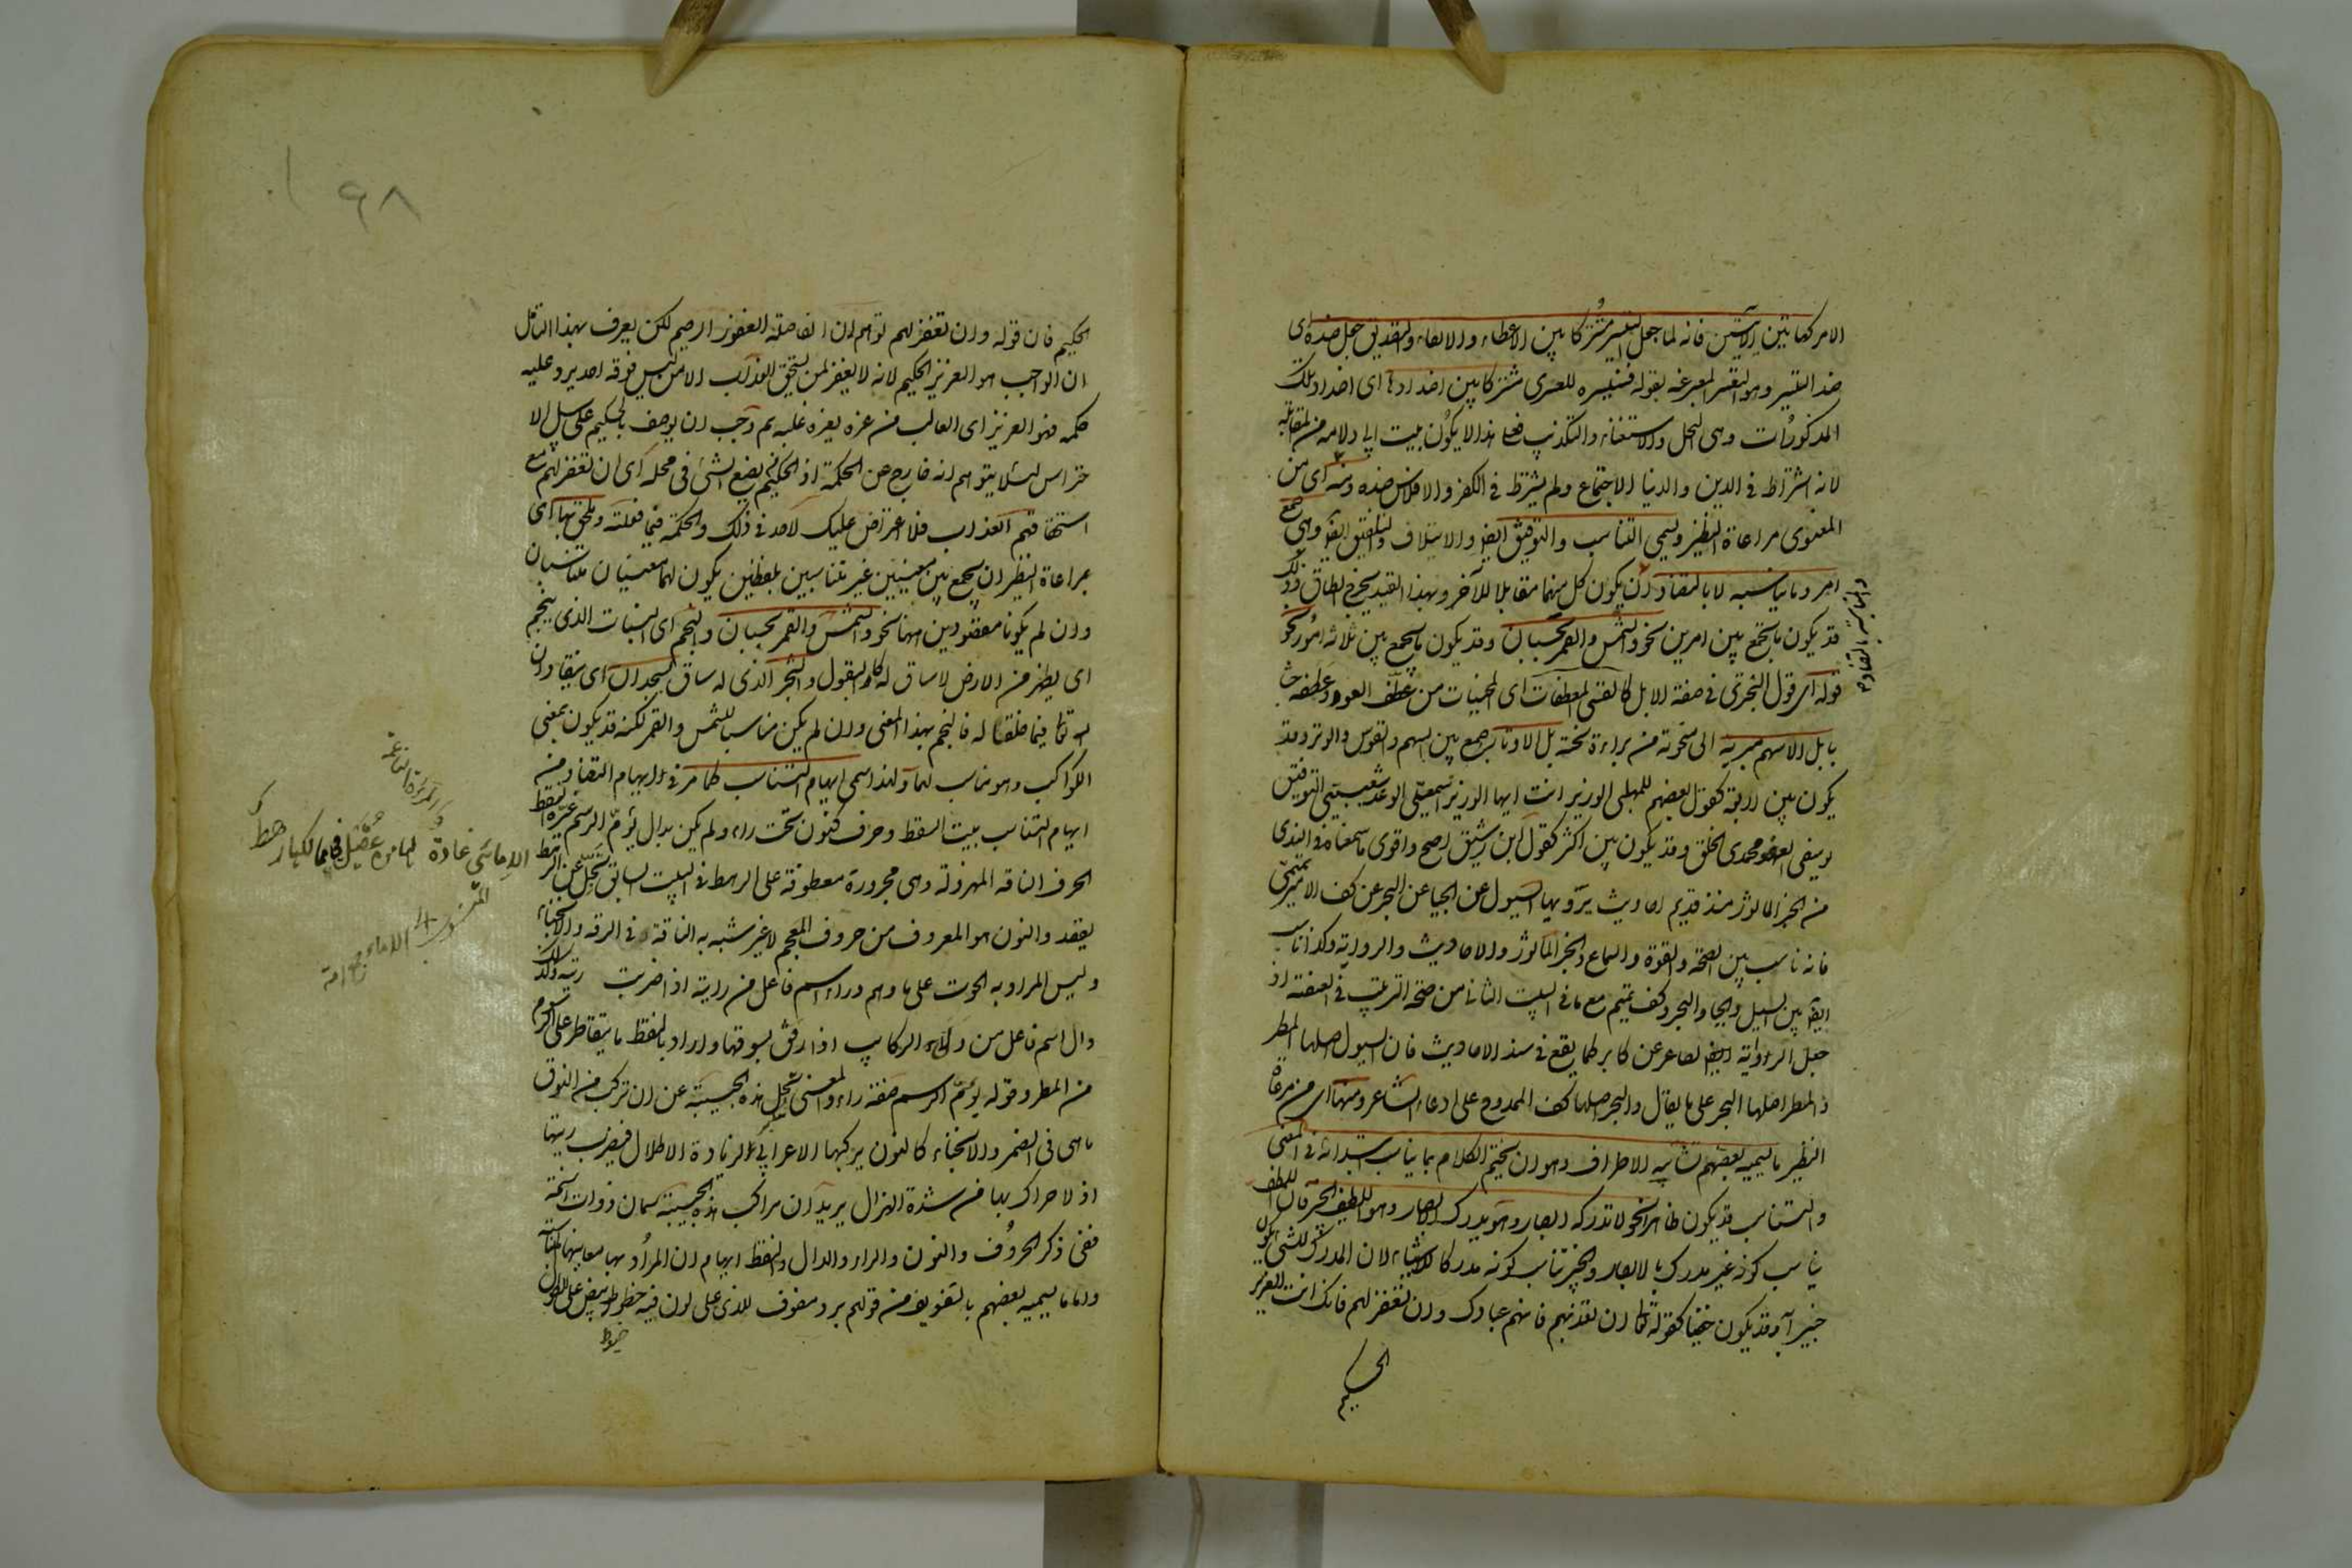 الامر كهاتين الآيتين فانه لما جعل التيسير مشتركا بين الاعطاء والاتقاء والتصديق جعل ضده اى
ضد التيسير وهو التعسير المعبر عنه بقوله فسنيسره للعسرى مشتركا بين اضدادها اى اضداد تلك
المذكورات وهى البخل والاستغناء والتكذيب فعلى هذا لا يكون بيت ابى دلامة من المقابلة
لانه اشتراط فى الدين والدنيا الاجتماع ولم يشترط فى الكفر والافلاس ضده ومنه اى من
المعنوى مراعاة النظير ويسمى التناسب والتوفيق ايضا والايتلاف والتلفيق ايضا وهى جمع
امر وما يناسبه لا بالتضاد ان يكون كل منهما مقابلا للآخر وبهذا القيد يخرج الطباق وذلك
قد يكون بالجمع بين امرين نحو والشمس والقمر بحسبان وقد يكون بالجمع بين ثلاثة امور نحو
قوله اى قول البحترى فى صفة الابل كالقسى المعطفات اى المحنيات من عطف العود وعطفه حناه
بل الاسهم مبرية اى منحوتة من براه نحته بل الاوتار جمع بين السهم والقوس والوتر وقد
يكون بين اربعة كقول بعضهم للمهلبى الوزير انت ايها الوزير اسمعيلى الوعد شعيبى التوفيق
يوسفى العفو محمدى الخلق وقد يكون بين اكثر كقول ابن رشيق اصح واقوى ما سمعناه فى الندى
من الخبر المأثور منذ قديم احاديث ترويها السيول عن الحيا عن البحر عن كف الامير تميم
فانه ناسب بين الصحة والقوة والسماع والخبر المأثور والاحاديث والرواية وكذا ناسب
ايضا بين السيل والحيا والبحر وكف تميم مع ما فى البيت الثانى من صحة الترتيب فى العنعنة اذ
جعل الرواية لصاغر عن كابر كما يقع فى سند الاحاديث فان السيول اصلها المطر
والمطر اصلها البحر على ما يقال والبحر اصلها كف الممدوح على ادعاء الشاعر ومنها اى من مراعاة
النظير ما يسميه بعضهم تشابه الاطراف وهو ان يختم الكلام بما يناسب ابتداءه فى المعنى
والتناسب قد يكون ظاهرا نحو لا تدركه الابصار وهو يدرك الابصار وهو اللطيف الخبير فان اللطف
يناسب كونه غير مدرك بالابصار والخبير يناسب كونه مدركا للاشياء لان المدرك للشى يكون
خبيرا به وقد يكون خفيا كقوله تعالى ان تعذبهم فانهم عبادك وان تغفر لهم فانك انت العزيز
الحكيم
٩٨
الحكيم فان قوله وان تغفر لهم يوهم ان الفاصلة الغفور الرحيم لكن يعرف بهذا التأمل
ان الواجب هو العزيز الحكيم لانه لا يغفر لمن يستحق العذاب الا من ليس فوقه احد يرد عليه
حكمه فهو العزيز اى الغالب من عزه يعزه غلبه ثم وجب ان يوصف بالحكيم على سبيل الا
حتراس لئلا يتوهم انه خارج عن الحكمة اذ الحكيم يضع الشئ فى محله اى ان تغفر لهم مع
استحقاقهم العذاب فلا اعتراض عليك لاحد فى ذلك والحكمة فيما فعلته ويلحق بها اى
بمراعاة النظير ان يجمع بين معنيين غير متناسبين بلفظين يكون لهما معنيان متناسبان
وان لم يكونا مقصودين ههنا نحو والشمس والقمر بحسبان والنجم اى النبات الذى ينجم
اى يظهر من الارض لا ساق له كالبقول والشجر الذى له ساق يسجدان اى ينقادان
لله تعالى فيما خلقا له فالنجم بهذا المعنى وان لم يكن مناسبا للشمس والقمر لكنه قد يكون بمعنى
الكواكب وهو مناسب لهما ولهذا سمى ايهام التناسب كما مر فى ايهام التضاد ومنه
ايهام التناسب بيت السقط وحرف كنون تحت راء ولم يكن بدال يؤم الرسم غيره النقط
الحرف الناقة المهزولة وهى مجرورة معطوفة على الرهط فى البيت السابق تجل عن الرهط
الاماىٔ غادة لها من عقيل فى ممالكها رهط
يعقد والنون هو المعروف من حروف المعجم لا غير شبه به الناقة فى الرقة والانحناء
وليس المراد به الحوت على ما وهم وراء اسم فاعل من رايته اذا ضربت ريته وكذلك
دال اسم فاعل من دلاء الركايب اذا رفق بسوقها واراد بالنقط ما يتقاطر على الرسوم
من المطر وقوله يؤم الرسم صفة راء والمعنى تجل هذه الحبيبة عن ان تركب من النوق
ما هى فى الضمر والانحناء كالنون يركبها الاعرابى لزيادة الاطلال فيضرب ريتها
اذ لا حراك بها من شدة الهزال يريد ان مراكب هذه الحبيبة سمان ذوات اسنمة
ففى ذكر الحروف والنون والراء والدال والنقط ايهام ان المراد بها معانيها المتناسبة
واما ما يسميه بعضهم بالتفويف من قولهم برد مفوف للذى على لون فيه خطوط بيض على الطول